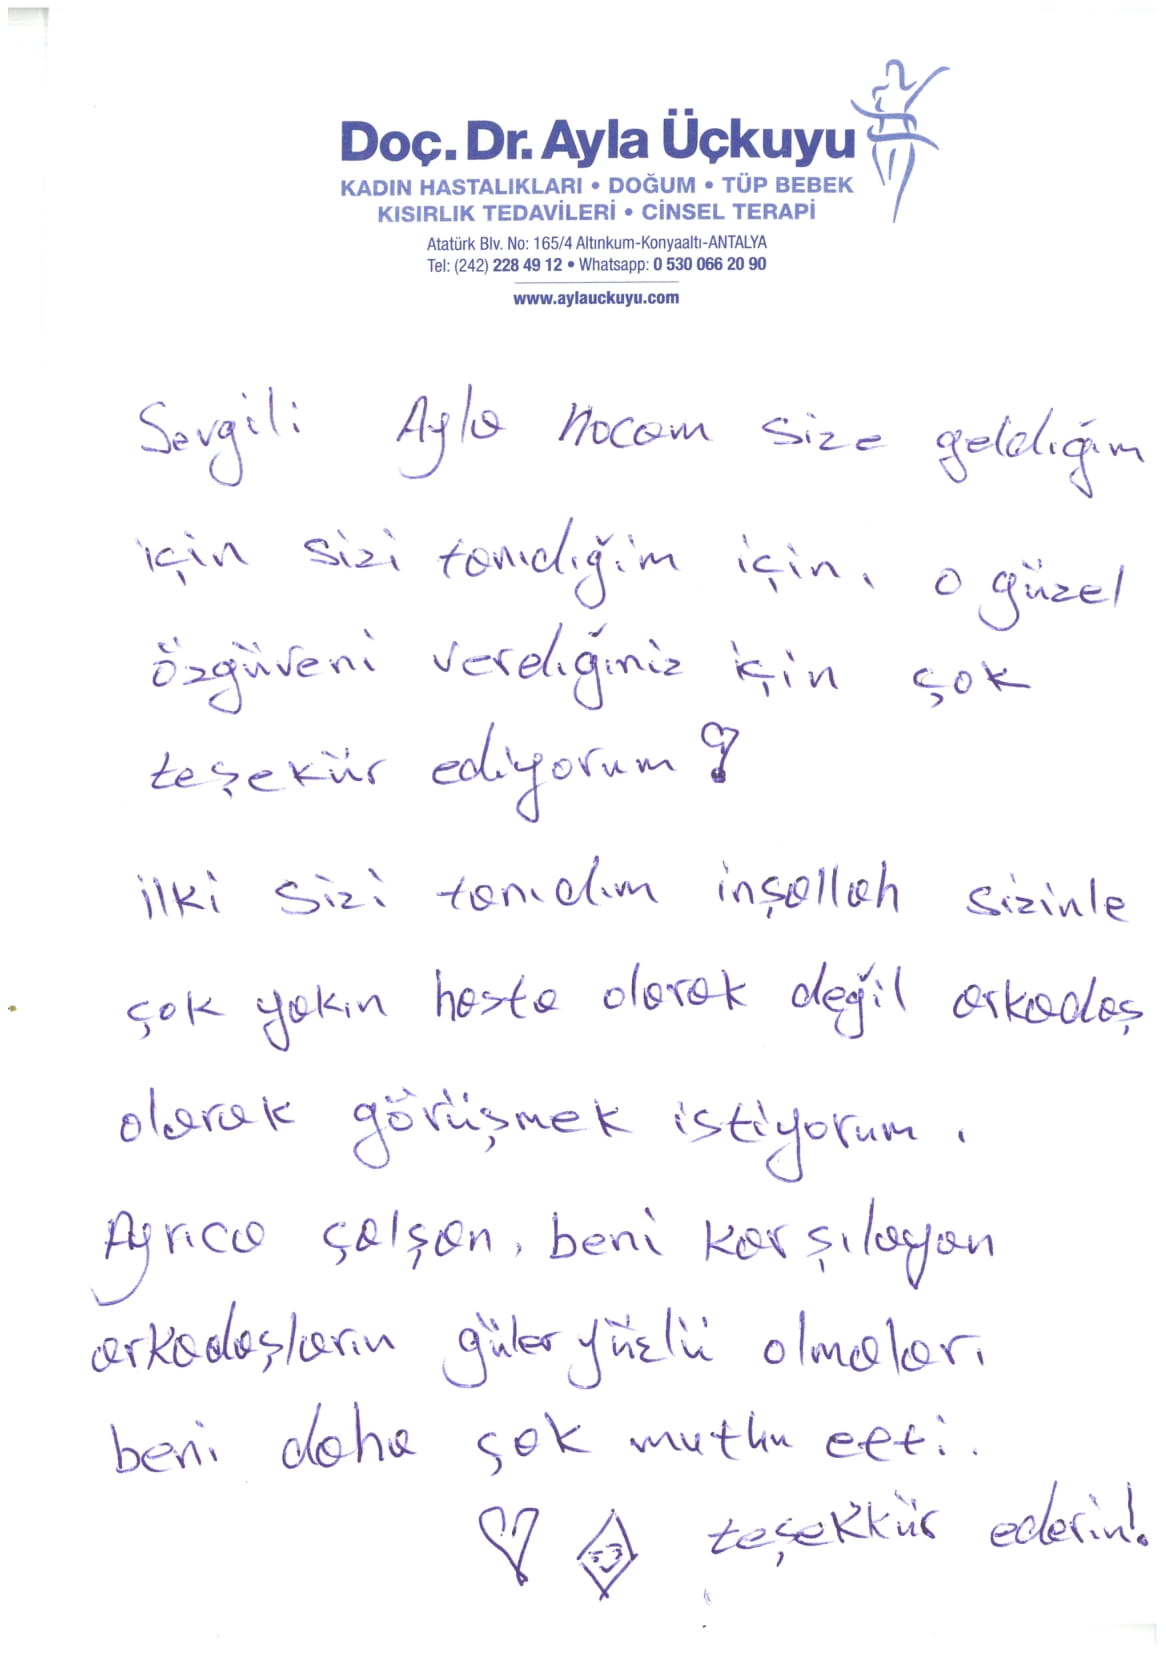 Doç. Dr. Ayla Üçkuyu
KADIN HASTALIKLARI • DOĞUM • TÜP BEBEK
KISIRLIK TEDAVİLERİ • CİNSEL TERAPİ
Atatürk Blv. No: 165/4 Altınkum-Konyaaltı-ANTALYA
Tel: (242) 228 49 12 • Whatsapp: 0 530 066 20 90
www.aylauckuyu.com
Sevgili Ayla Hocam size geldiğim
için sizi tanıdığım için, o güzel
özgüveni verdiğiniz için çok
teşekür ediyorum
ilki sizi tanıdım inşallah sizinle
çok yakın hasta olarak değil arkadaş
olarak görüşmek istiyorum.
Ayrıca çalşan, beni karşılayan
arkadaşların güler yüzlü olmaları
beni daha çok mutlu etti.
teşekkür ederim!